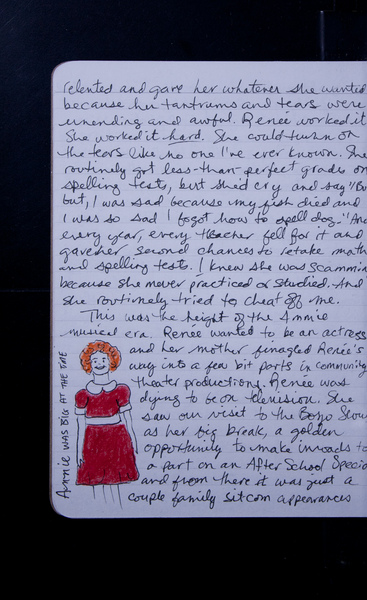 relented and gave her whatever she wanted
because her tantrums and tears were
unending and awful. Renée worked it.
She worked it hard. She could turn on
the tears like no one I've ever known. She
routinely got less-than-perfect grades on
spelling tests, but she'd cry and say "Bu
but, I was sad because my fish died and
I was so sad I fogot how to spell dog." And
every year, every teacher fell for it and
gave her second chances to retake math
and spelling tests. I knew she was scammin
because she never practiced or studied. And
she routinely tried to cheat off me.
This was the height of the Annie
musical era. Renée wanted to be an actress
and her mother finagled Renée's
way into a few bit parts in community
theater productions. Renée was
dying to be on television. She
saw our visit to the Bozo Show
as her big break, a golden
opportunity to make inroads to
a part on an After School Specia
and from there it was just a
couple family sitcom appearances
Annie was big at the time